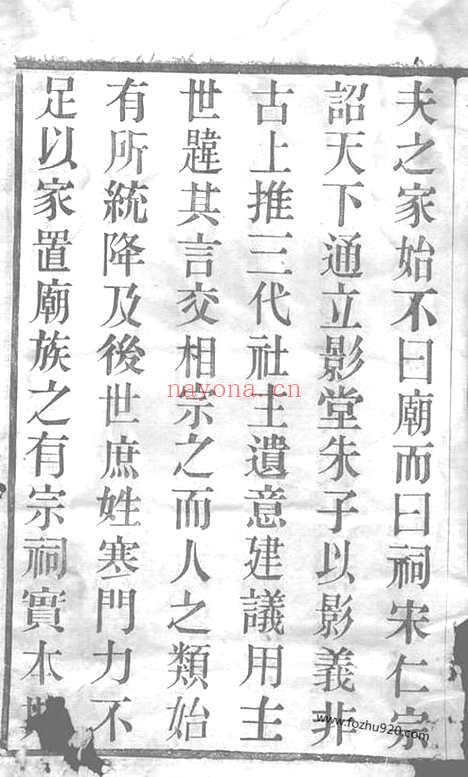 夫之家始不曰廟而曰祠宋仁宗
詔天下通立影堂朱子以影義非
古上推三代社主遺意建議用主
世韙其言交相宗之而人之類始
有所統降及後世庶姓寒門力不
足以家置廟族之有宗祠實本
nayona.cn
www.fozhu920.com